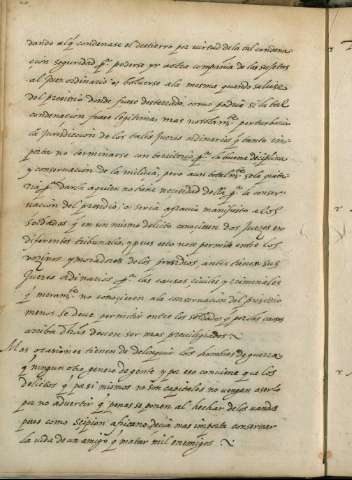 dando alq̃ condenase el destierro por virtud de la tal condena
cion seguridad p.ª poderse yr a otra compañia de los sujetos
al juez ordinario o bolverse a la mesma quando saliese
del presidio donde fuese desterrado como podria si la tal
condenacion fuese legitima mas no solam.te perturbaria
la jurisdicion de los tales juezes ordinarios y tanta im
porta no terminarse con p.ª la buena disciplina
y conservacion de la milicia, pero aun totalm.te sola
p.ª darle a quien no tiene necesidad della p.ª la conser
vacion del presidio, o seria agravio manifiesto a los
soldados q̃ en un mismo delito conociesen dos juezes en
diferentes tribunales, y pues esto no se permite entre los
vezinos y moradores de los presidios, antes tienen sus
juezes ordinarios p.ª las causas civiles y criminales
q̃ meram.te no conciernen a la conservacion del presidio
menos se deve permitir entre los soldados q̃ por las causas
arriba dichas deven ser mas previlegiados.
Mas ocasiones tienen de delinquir los hombres de guerra
q̃ ningun otro genero de gente, y por eso conviene que los
delictos q̃ por si mismos no son capitales no vengan a serlo
por no advertir q̃ penas se ponen al hechar de los vandos
pues como Scipion africano decia mas importa conservar
la vida de un amigo q̃ matar mil enemigos.